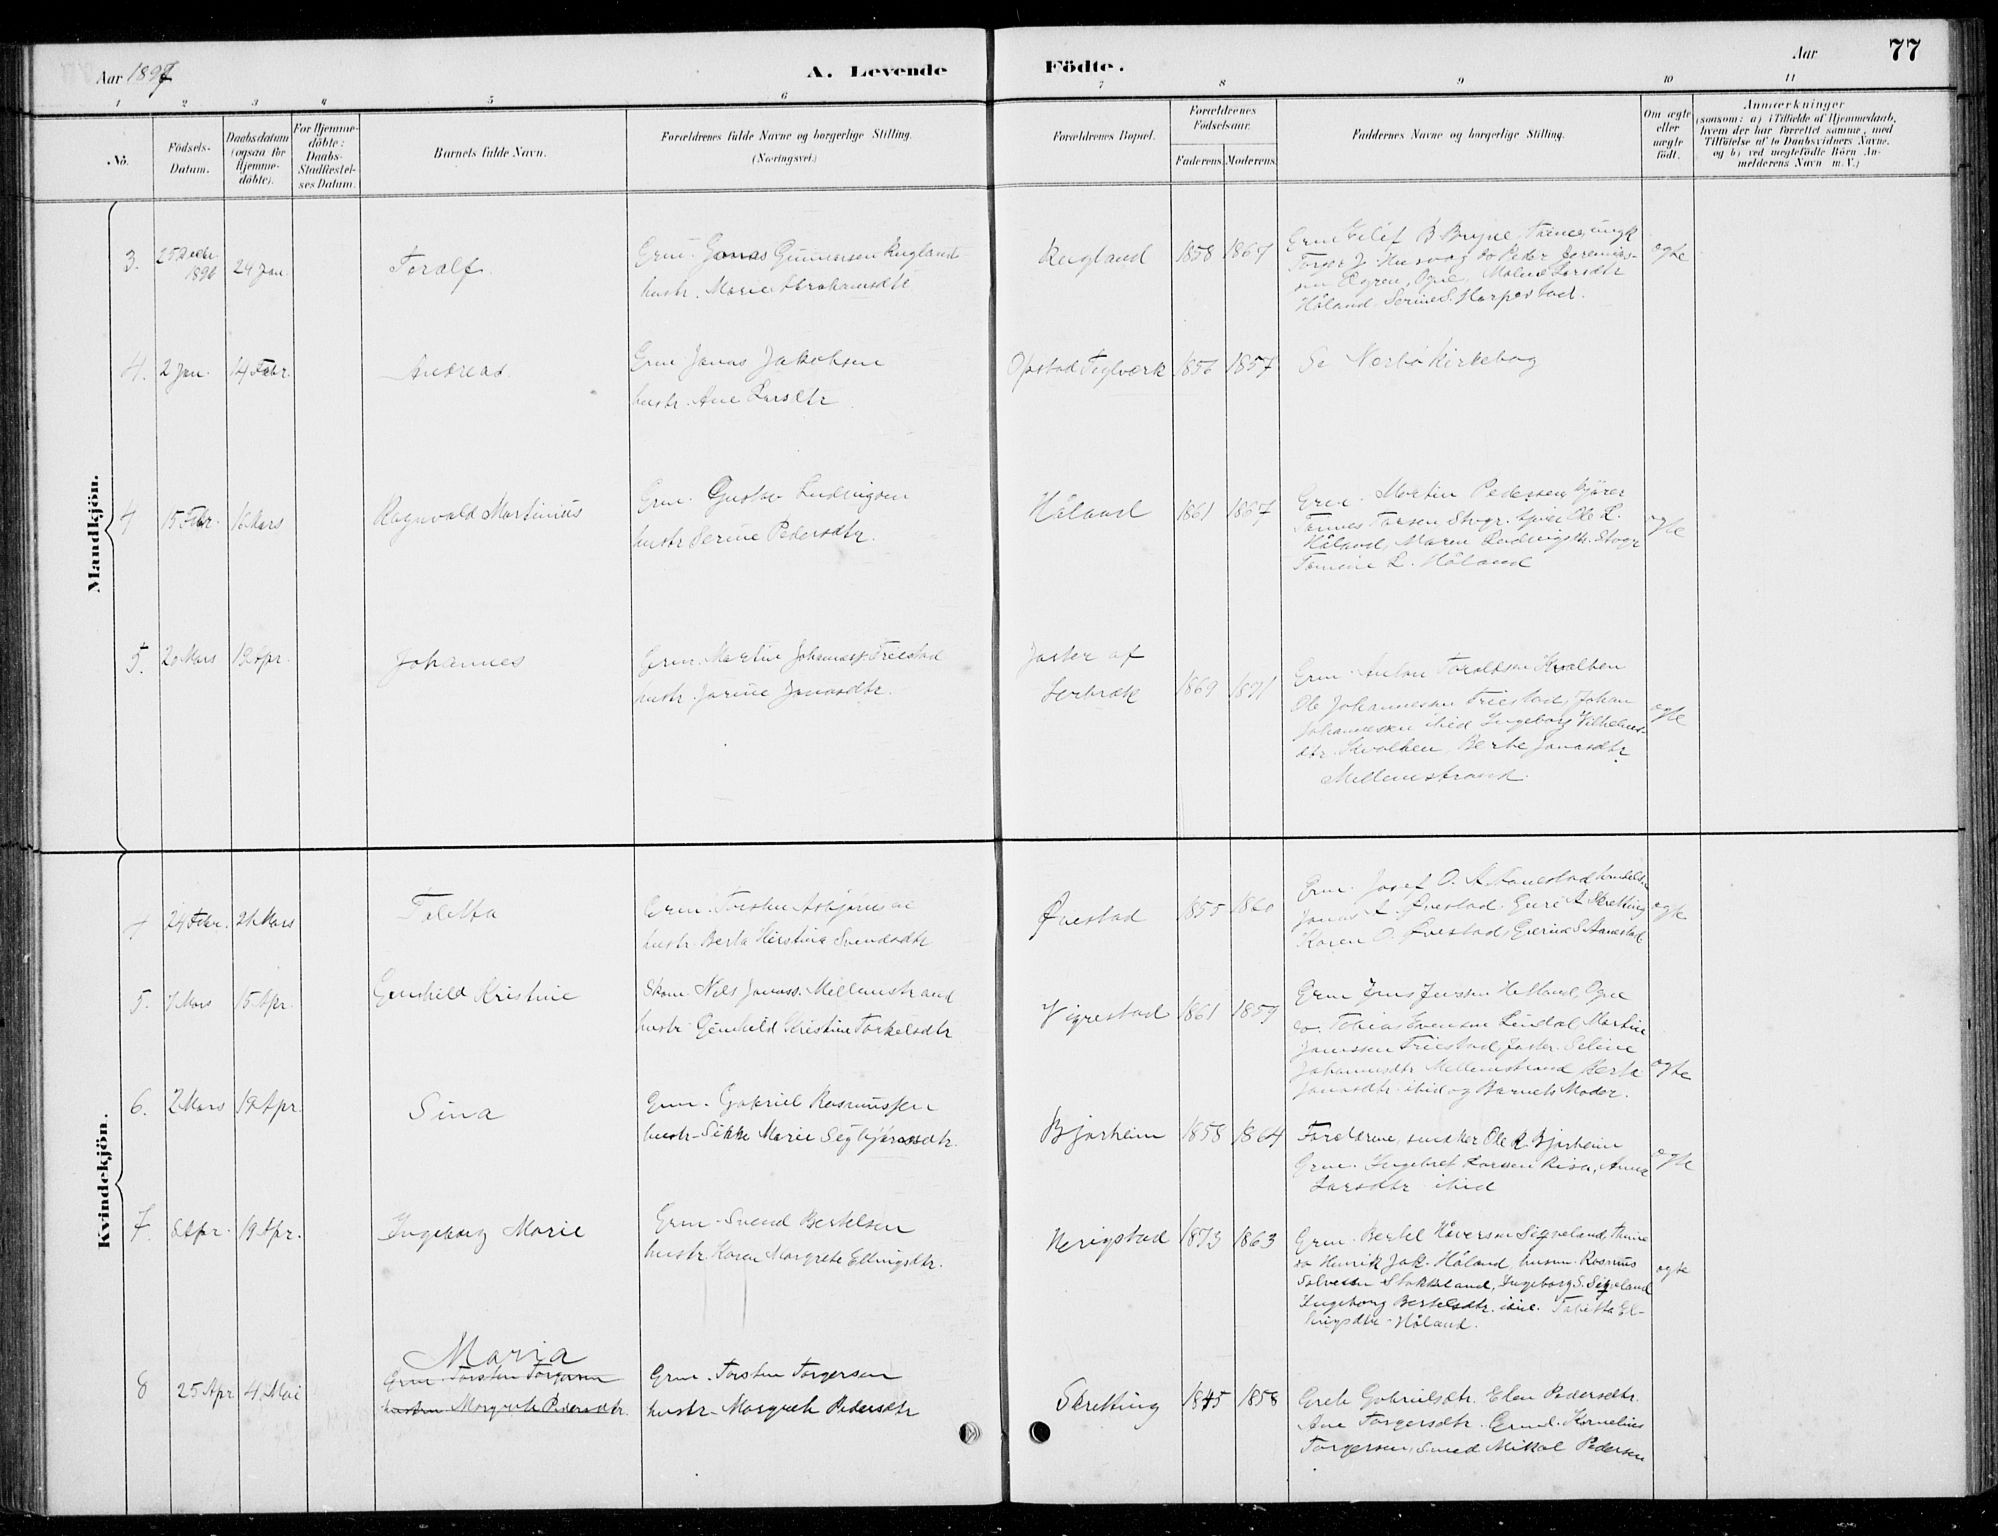 Aar 1897
A. Levende
Födte.
Aar
77
1 2 3 4 5 6 7 8 9 10 11
No.
Födsels-
Datum.
Daabsdatum
(ogsaa for
Hjemme-
döbte).
For Hjemme-
döbte:
Daabs-
Stadfæstel-
ses Datum.
Barnets fulde Navn.
Forældrenes fulde Navne og borgerlige Stilling.
(Næringsvei.)
Forældrenes Bopæl.
Forældrenes
Födselsaar.
Faderens.
Moderens.
Faddernes Navne og borgerlige Stilling.
Om ægte
eller
uægte
födt.
Anmærkninger
(saasom: a) i Tilfælde af Hjemmedaab,
hvem der har forrettet samme, med
Tilföielse af to Daabsvidners Navne,
og b) ved uegtefödte Börn An-
melderens Navn m. V.)
Mandkjön.
3. 25 Decbr. 1896 24 Jan. Toralf
Grm. Jonas Gunnarsen Rugland
hustr. Marie Abrahamsdtr
Rugland 1858 1867
Grm Eilif B Bryne,
Torger J. Husvog do Peder Jeremias-
sen Elgren, Ogne, Malene Larsdtr
Håland, Serine S. Harpestad.
ægte
4. 2 Jan. 14 Febr. Andreas
Grm Jonas Jakobsen
hustr. Ane Larsdtr
Opstad Teglværk 1856 1857
Se Nærbø Kirkebog
4 15 Febr. 16 Mars Ragnvald Martinius
Grm. Gustav Ludvigsen
hustr Serine Pedersdtr.
Håland 1861 1867
Grm. Martin Pedersen Kjører
Tønnes Larsen Stvgr. Ole L.
Håland, Maren Ludvigsdtr. Stvgr
Tomine L. Håland
ægte
5. 20 Mars 19 Apr. Johannes
Grm. Martin Johanness. Friestad
hustr. Jorine Jonasdtr.
Joster af
1869 1871
Grm. Anton Toraldsen Kvalben
Ole Johannessen Friestad, Johan
Johannessen ibid Ingeborg Vilhelms-
dtr. Kvalben, Berte Jonasdtr
Mellemstrand.
ægte
Kvindekjön.
4 24 Febr. 21 Mars Toletta
Grm. Torsten Asbjørnsen
hustr. Berta Kirstina Svendsdtr
Øvestad 1855 1860
Grm. Josef O. A. Aanestad
Jonas A. Øvestad. Guri A Skretting
Karen O. Øvestad, Gurine S Aanestad
ægte
5. 7 Mars 15 Apr. Gunhild Kristine
Skom. Nils Jonass. Mellemstrand
hustr. Gunhild Kristine Torkelsdtr
Vigrestad 1861 1859
Grm Jens Jenssen Helland, Ogne
do. Tobias Evensen Lindal, Martin
Jonassen Friestad, Joster. Seline
Johannesdtr Mellemstrand Berte
Jonasdtr. ibid og Barnets Moder.
ægte
6. 2 Mars 19 Apr. Sina
Grm. Gabriel Rasmussen
hustr. Sikke Marie Segbjørnsdtr.
Bjorheim 1858 1864
Forældrene, snedker Ole R. Bjorheim
Grm. Ingebret Larsen Risa, Anna
Larsdtr ibid
ægte
7. 8 Apr. 19 Apr. Ingeborg Marie
Grm. Svend Bertelsen
hustr. Karen Margrete Ellingsdtr.
Nerigstad 1873 1863
Grm. Bertel Håversen Sigveland,
do Henrik Jak. Håland, husm. Rasmus
Salvesen Stokkeland, Ingeborg S. Sigveland
Ingeborg Bertelsdtr. ibid. Tabitta El-
lingsdtr. Håland.
ægte
8 25 Apr 4. Mai Maria
Grm. Torsten Torgersen
hustru Margrete Pedersdtr.
Grm. Torsten Torgersen
hustr. Margrete Pedersdtr
Skretting 1845 1858
Grete Gabrielsdtr. Elen Pedersdtr.
Ane Torgersdtr. Grmd. Kornelius
Torgersen, Smed Mikkal Pedersen